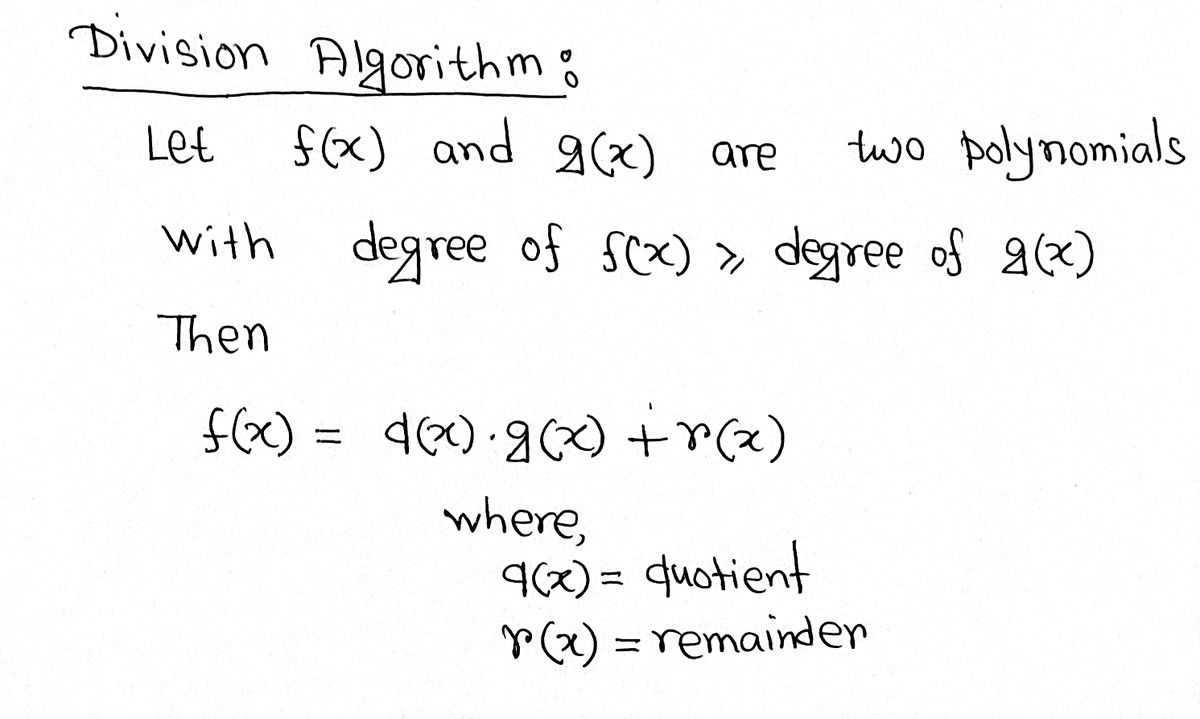 Division Algorithm:
Let f(x) and g(x) are two polynomials
with degree of f(x) ⩾ degree of g(x)
Then
f(x) = q(x)·g(x) + r(x)
where,
q(x) = quotient
r(x) = remainder